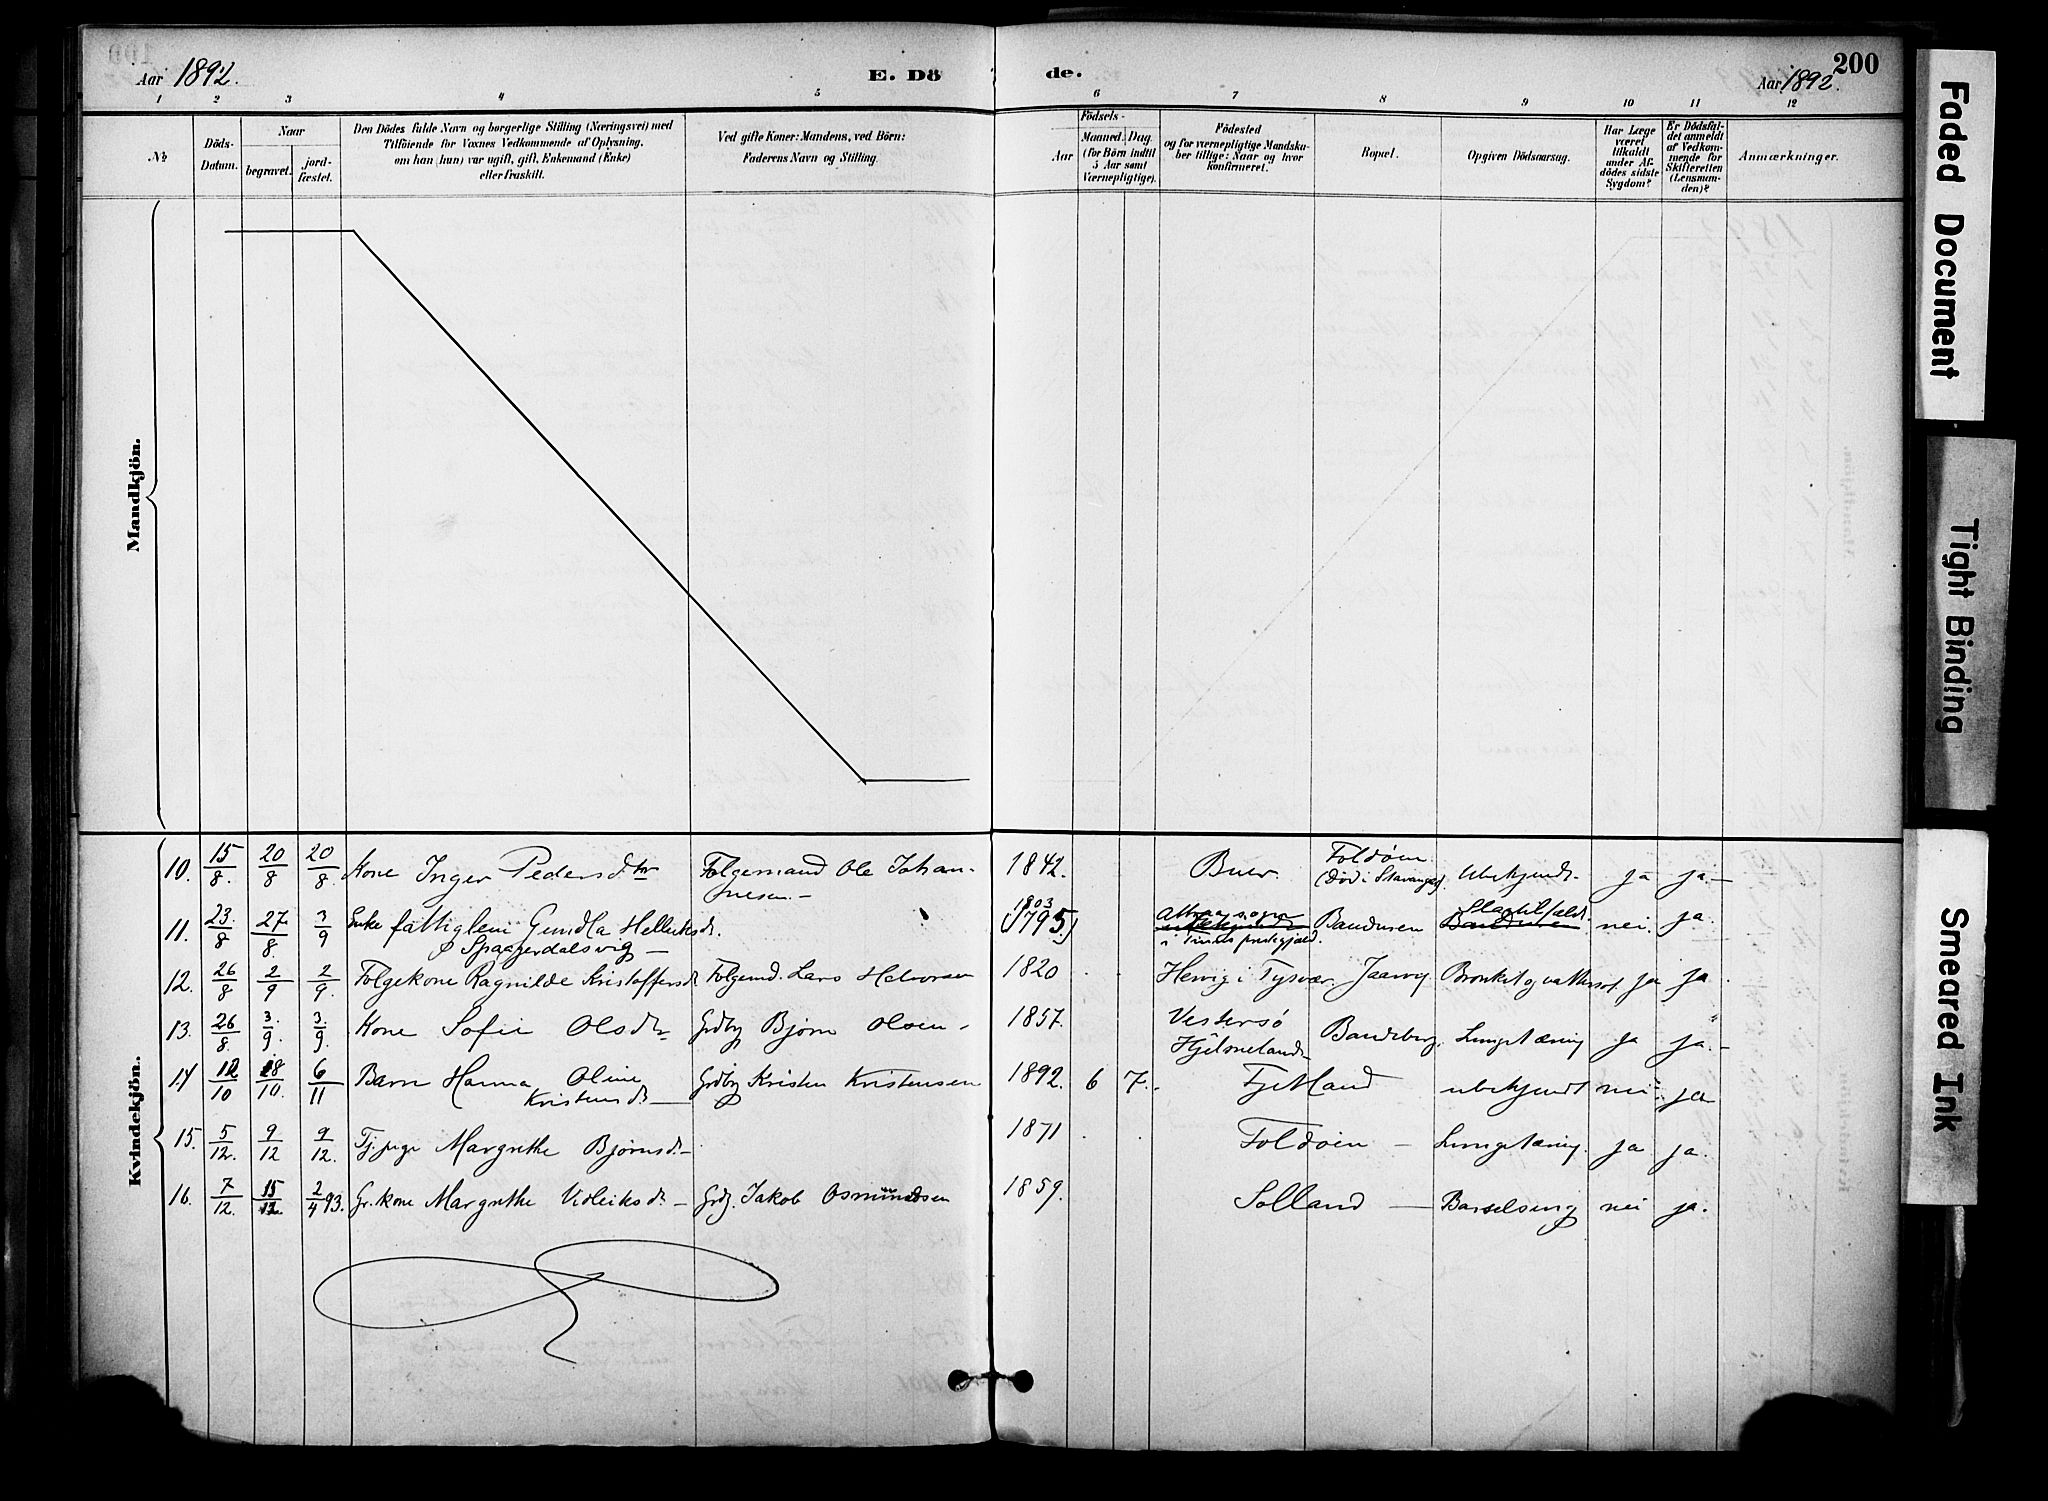 Aar 1892.
E. Dö
de.
Aar 1892.
200
1 2 3 4 5 6 7 8 9 10 11 12
№
Döds-
Datum.
Naar
begravet.
jord-
fæstet.
Den Dödes fulde Navn og borgerlige Stilling (Næringsvei) med
Tilföiende for Voxnes Vedkommende af Oplysning,
om han (hun) var ugift, gift, Enkemand (Enke)
eller fraskilt.
Ved gifte Koner: Mandens, ved Börn:
Faderens Navn og Stilling.
Födsels-
Aar
Maaned. Dag.
(for Börn indtil
5 Aar samt
Værnepligtige).
Födested
og for værnepligtige Mandska-
ber tillige: Naar og hvor
konfirmeret.
Bopæl.
Opgiven Dödsaarsag.
Har Læge
været
tilkaldt
under Af-
dödes sidste
Sygdom?
Er Dödsfal-
det anmeldt
af Vedkom-
mende for
Skifteretten
(Lensman-
den)?
Anmærkninger.
Mandkjön.
Kvindekjön.
10. 15/8. 20/8 20/8. Kone Inger Pedersdtr Folgemand Ole Johan-
nesen. 1842. Buer. Foldöen
(död i Stavanger). Ubekjendt. ja ja.
11. 23/8 27/8. 3/9 Enke fattiglem Gundla Helliksd.
Spaagerdalsvig 1803
(1795.) Attraa sogn
i Tinds prestegjæld. Baudusen Slagtilfælde. nei. ja.
12. 26/8 2/9 2/9. Folgekone Ragnilde Kristoffersd. Folgemd. Lars Halvorsen 1820 Hervig i Tysvær. Jaarvig. Bronkit og vattersot. ja ja.
13. 26/8. 3/9. 3/9. Kone Sofie Olsdr Grdbr Bjørn Olsen 1857. Vestersö
Hjelmeland Baudeberg. Lungetæring ja ja.
14 12/10 18/10. 6/11 Barn Hanna Oline
Kristensd. Grdbr Kristen Kristensen 1892. 6 7. Fjetland ubekjendt nei ja
15. 5/12. 9/12 9/12. Tj. pige Margrethe Bjørnsd. 1871 Foldöen Lungetæring. ja ja.
16. 7/12. 15/12 2/4 93. Gr. kone Margrethe Vidleiksd. Grdb. Jakob Osmundsen 1859. Solland Barselseng nei ja.
Faded Document
Tight Binding
Smeared Ink